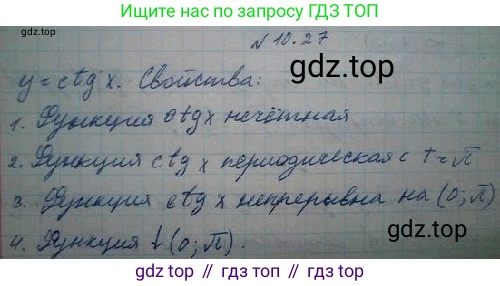 Ищите нас по запросу ГДЗ ТОП
N 10.27
gdz.top
y = ctg x. Свойства:
1. Функция ctg x нечётная
2. Функция ctg x периодическая с T = π
3. Функция ctg x непрерывна на (0; π)
4. Функция ↓ (0; π).
gdz.top // гдз.top // gdz.top